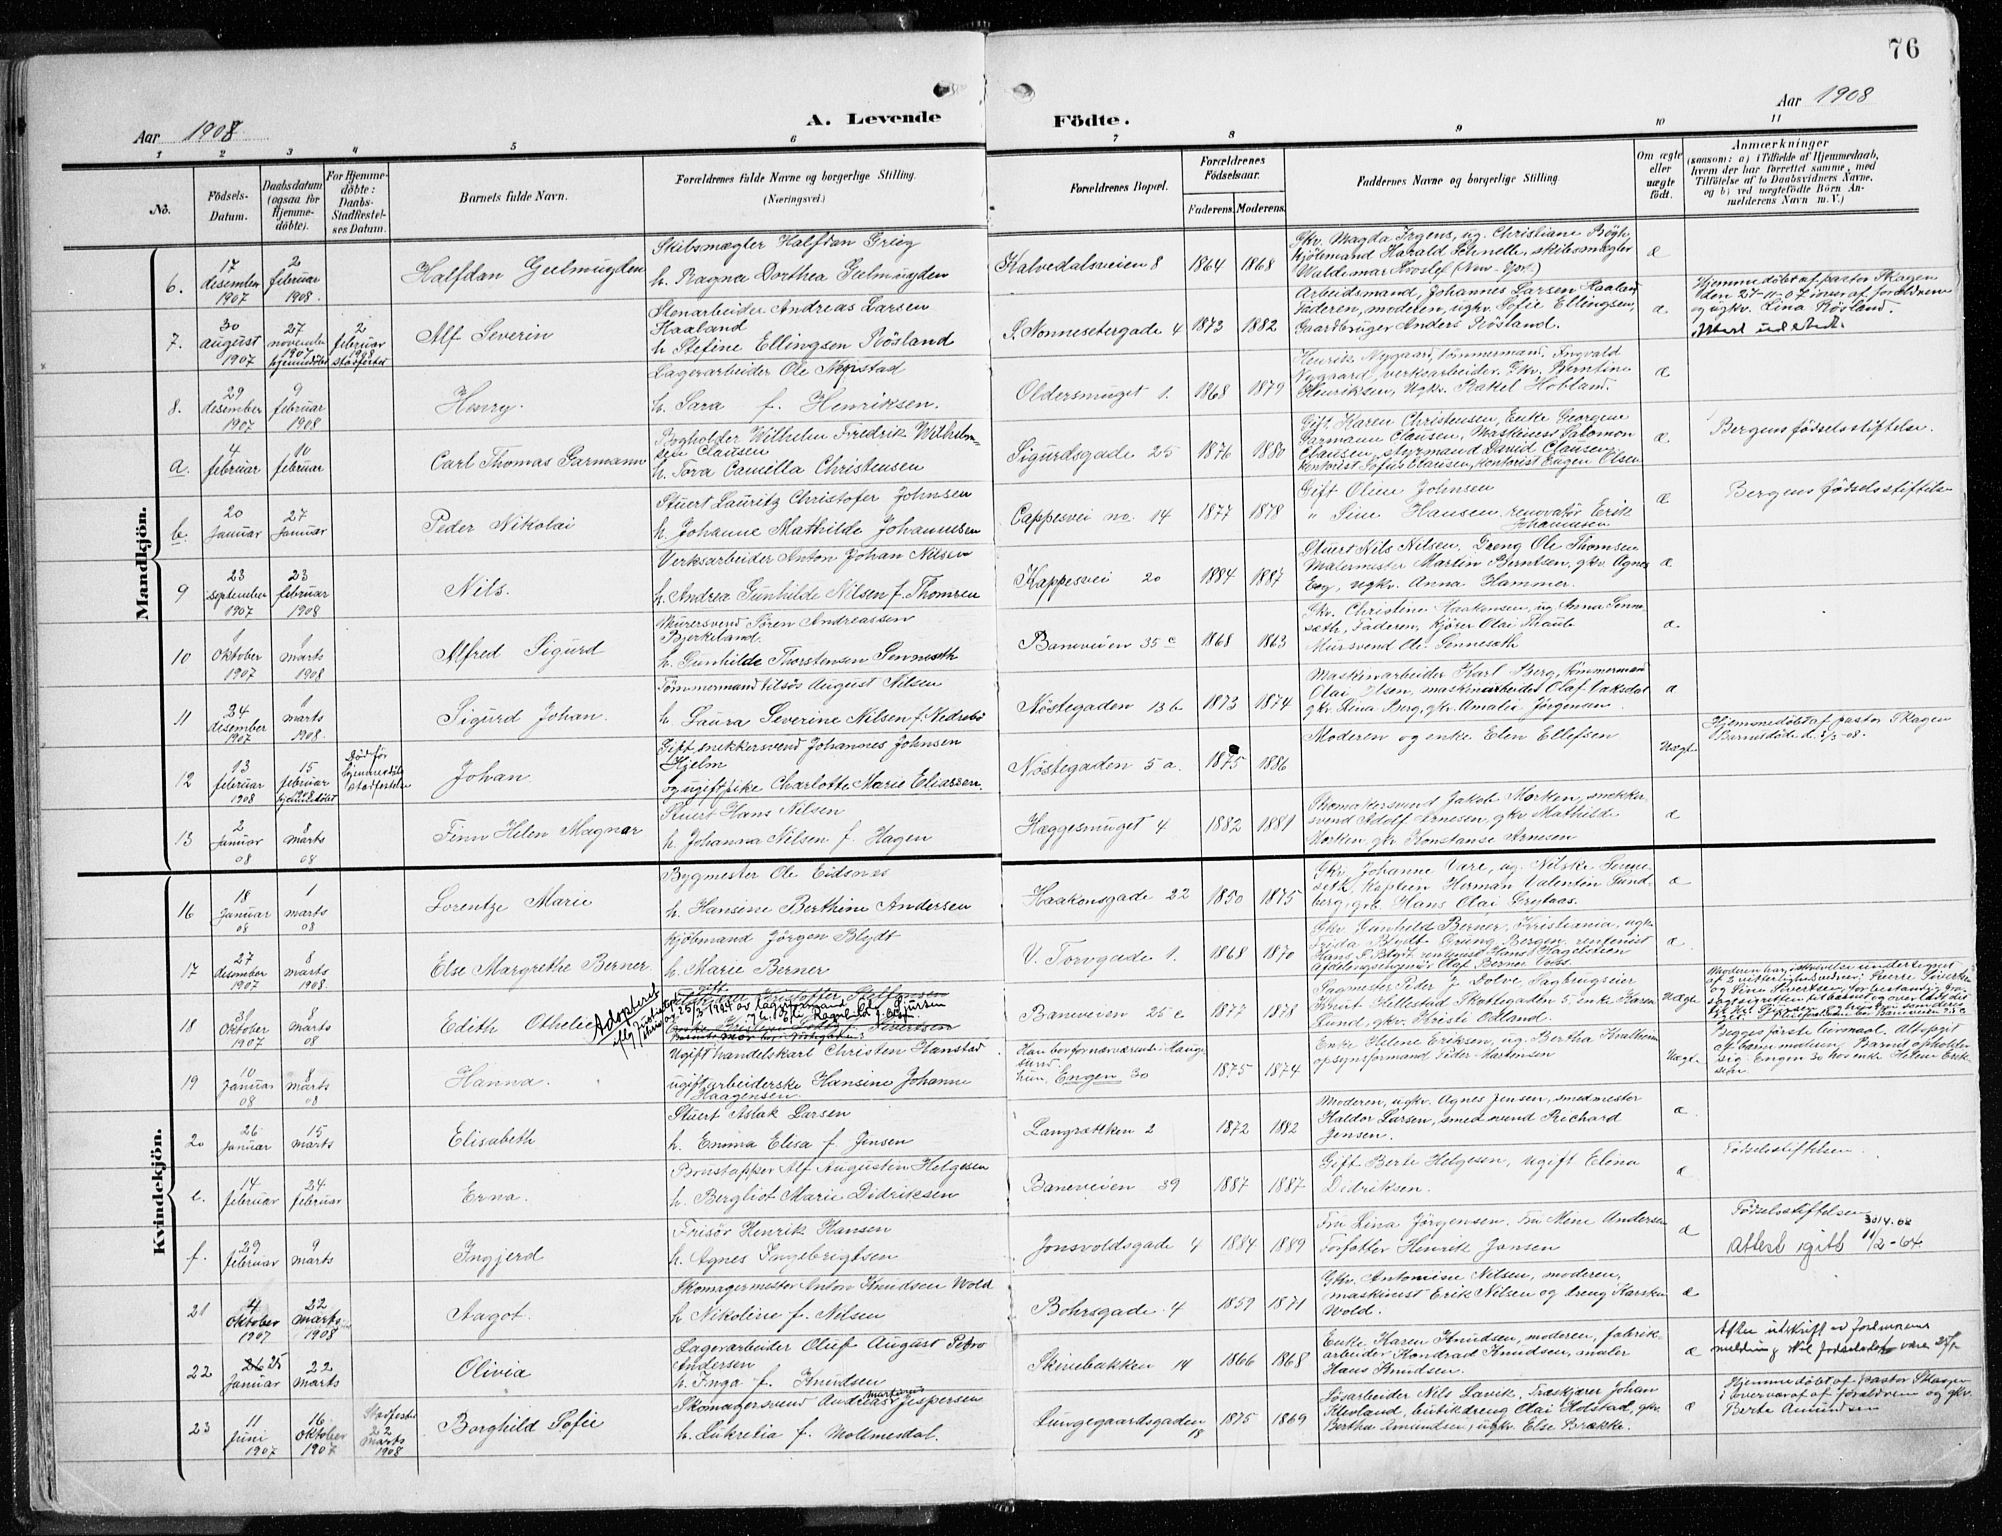 76
Aar 1908
A. Levende
Födte.
Aar 1908
1 2 3 4 5 6 7 8 9 10 11
No.
Födsels-
Datum.
Daabsdatum
(ogsaa for
Hjemme-
döbte).
For Hjemme-
döbte:
Daabs-
Stadfæstel-
ses Datum.
Barnets fulde Navn.
Forældrenes fulde Navne og borgerlige Stilling.
(Næringsvei.)
Forældrenes Bopæl.
Forældrenes
Födselsaar.
Faderens. Moderens.
Faddernes Navne og borgerlige Stilling.
Om ægte
eller
uægte
födt.
Anmærkninger
(saasom: a) i Tilfælde af Hjemmedaab,
hvem der har forrettet samme, med
Tilföielse af to Daabsvidners Navne,
og b) ved uægtefödte Börn An-
melderens Navn m. V.)
Mandkjön.
6.
17
desember
1907
2
februar
1908.
Halfdan Geelmuyden
Skibsmægler Halfdan Grieg
h. Ragna Dorthea Geelmuyden
Kalvedalsveien 8
1864 1868
Gkv. Magda Irgens, ug. Christiane Bögh,
kjöbmand Harald Schnelle, skibsmægler
Waldemar (New-York)
æ
7.
30
august
1907
27
november
1907
hjemmedöbt
2
februar
1908
stadfestet
Alf Severin
Stenarbeider Andreas Larsen
Haaland
h Stefine Ellingsen Røsland
S. Nonnesetergade 4
1873 1882
Arbeidsmand, Johannes Larsen Haaland
Faderen, moderen, ugkv. Sofie Ellingsen,
Gaardbruger Anders Røsland.
æ
Hjemmedöbt af pastor Skagen
den 27-11-07 i nærv. af forældrene
og ugkv. Lina Røsland.
Attest udstedt.
8.
29
desember
1907
9
februar
1908
Henry.
Lagerarbeider Ole Nepstad
h. Sara f. Henriksen.
Oldersmuget 1.
1868 1879
Henrik Nygaard, tømmermand, Ingvald
Nygaard, verksarbeider. Gkv. Berntine
Henriksen, Ugkv. Rakel Hobland.
æ
a.
4
februar
10
februar
Carl Thomas Garmann
Bogholder Wilhelm Fredrik Wilhelm-
sen Clausen
h. Tora Camilla Christensen
Sigurdsgade 25
1876 1880
Gift Karen Christensen, Enke Georgene
Garmann Clausen, Maskinist Salomon
Clausen, styrmand David Clausen,
kontorist Sofus Clausen, kontorist Eugen Olsen
æ
Bergens födselsstiftelse.
b.
20
Januar
27
Januar
Peder Nikolai
Stuert Lauritz Christofer Johnsen
h. Johanne Mathilde Johannesen
Cappesvei no. 14
1877 1878
Gift Oline Johnsen
" Sine Hansen, renovatör Erik
Johannesen
æ
Bergens födselsstiftelse
9
23
september
1907
23
februar
1908
Nils.
Verksarbeider Anton Johan Nilsen
h. Andrea Gunhilde Nilsen f. Thomsen
Kappesvei 20
1884 1887
Stuert Nils Nilsen, Dreng Ole Thomsen
Malermester Martin Berntsen, gkv. Agnes
Eeg, ugkv. Anna Hammer.
æ
10
1
Oktober
1907
1
marts
1908
Alfred Sigurd
Murersvend Søren Andreassen
Bjerkeland.
h. Gunhilde Thorstensen Sennesæth
Baneveien 35 c
1868 1863
Gkv. Christine Haakonsen, ug. Anna Senne-
sæth, Faderen, Kjører Olai Thaule
Mursvend Ole Sennesæth
æ
11
24
desember
1907
1
marts
1908.
Sigurd Johan.
Tømmermand tilsøs August Nilsen
h. Laura Severine Nilsen f. Nedrebø
Nøstegaden 13 b
1873 1874
Maskinarbeider Karl Berg, tømmermand
Olai Olsen, maskinarbeider Olaf Vaksdal
gkv. Lina Berg, gkv. Amalie Jørgensen
æ
12
13
februar
1908
15
februar
1908
hjemmedöbt
død før
hjemmedåb
stadfestelse
Johan.
Gift snekkersvend Johannes Johnsen
Hjelm
og ugift pike Charlotte Marie Eliassen.
Nøstegaden 5 a.
1875 1886
Moderen og enke Elen Ellefsen
Uægte
Hjemmedöbt af pastor Skagen
Barnet døde d. 2/3-08.
13
2
Januar
08
8
marts
08
Finn Helen Magnar
Stuert Hans Nilsen
h. Johanna Nilsen f. Hagen
Hæggesmuget 4
1882 1881
Jakob Morken, snekker-
svend Adolf Arnesen, gkv Mathilde
Morken, gkv. Konstanse Arnesen
æ
Kvindekjön.
16
18
Januar
08
1
marts
08
Lorentze Marie
Bygmester Ole Eidsnes
h. Hansine Berthine Andersen
Haakonsgade 22
1850 1875
Gkv. Johanne Vare, ug. Nilske
Kaptein Herman Valentin Sund-
berg, grb. Hans Olai Grytaas.
æ
17
27
desember
1907
8
marts
1908
Else Margrethe Berner
Kjøbmand Jørgen Blydt
h. Marie Berner
V. Torvgade 1.
1868 1870
Gkv. Gunhild Berner, Kristiania, ugkv.
Frida Blydt Grung Bergen, rentenist
Hans F. Blydt, rentenist Hans Hagelstien
Afdelingsingeniør Olaf Berner Voss.
æ
18
31
Oktober
1907
8
marts
08
Edith Othelie
Adopteret
Baneveien 25 c
1877 1878
Sagmester Peder J. Dolve, Sagbrugseier
Knut Hellestad Skottegaden 5, enke Karen
Lund, gkv. Kristi Odland.
Uægte
19
10
Januar
08
8
marts
08
Hanna.
Ugift handelskarl Christen Hanstad
ugift arbeiderske Hansine Johanne
Haagensen
Han bor fornærværende i Hauge-
sund.
hun, Engen 30
1875 1874
Enke Helene Eriksen, ug. Bertha Kvalheim
opsynsformand Peder Mortensen
Uægte
Begges første leiermaal. Altopgit
af barnemoderen. Barnet opholder
sig Engen 30 hos enke Helene Erik-
sen.
20
26
Januar
15
marts
Elisabeth
Stuert Aslak Larsen
h. Emma Elisa f. Jensen
Langrækken 2
1872 1882
Moderen, ugkv. Agnes Jensen, smedmester
Haldor Larsen, smedsvend Richard
Jensen.
æ
e.
14
februar
24
februar
Erna.
Brustapper Alf Augustin Helgesen
h. Bergliot Marie Didriksen
Baneveien 39
1887 1887
Gift Berte Helgesen, ugift Elina
Didriksen.
æ
Fødselsstiftelsen.
f.
29
februar
9
marts
Ingjerd
Frisör Henrik Hansen
h. Agnes Ingebrigtsen
Jonsvoldsgade 4
1884 1889
Fru Lina Jørgensen. Fru Mine Andersen
Forfatter Henrik Jansen
æ
Fødselsstiftelsen
30/4-08
Attest igitt 11/2-64
21
4
Oktober
1907
22
marts
1908
Aagot.
Skomagermester Anton Knudsen Wold
h Nikoline f. Nilsen
Bohrsgade 4
1859 1871
Gkv. Antomine Nilsen, moderen,
maskinist Erik Nilsen og dreng Karsten
Wold.
æ
22
26 25
Januar
22
marts
Olivia
Lagerarbeider Oluf August Pedro
Andersen
h. Inga f. Knudsen
Skivebakken 14
1866 1868
Enke Karen Knudsen, moderen, fabrik-
arbeider Kondrad Knudsen, maler
Hans Knudsen.
æ
23
11
Juni
1907
16
Oktober
1907
Stadfestet
22
Marts
1908
Borghild Sofie
Skomagersvend Andreas Martinus Jespersen
h. Lukretia f. Mollmesdal.
Lungegaardsgaden
18
1875 1869
Løsarbeider Nils Lavik, Træskjærer Johan
Klevland, butikdreng Olai Holstad, gkv.
Bertha Amundsen, ugkv. Else Brække.
æ
Hjemmedöbt af pastor Skagen
i overvær af forældrene og gkv.
Berte Amundsen